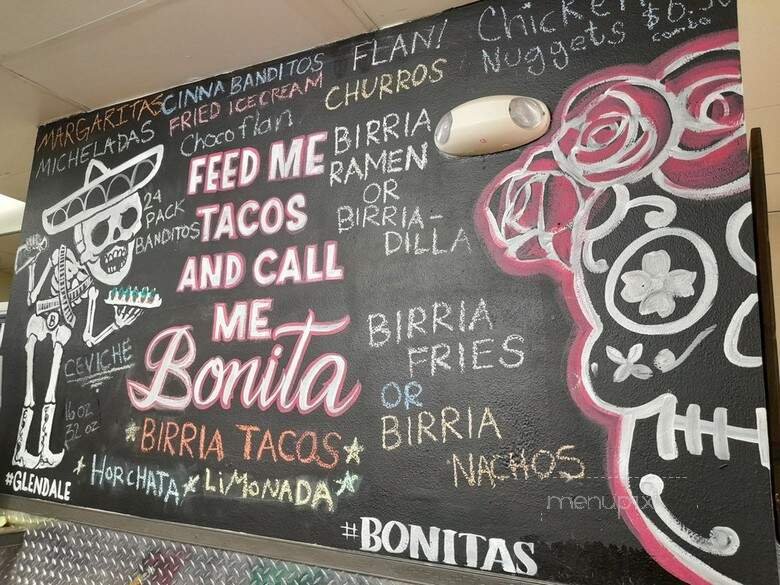 MARGARITAS
MICHELADAS
CINNA BANDITOS
FRIED ICECREAM
Chocoflan
FLAN!
CHURROS
Chicken
Nuggets
combo
24
PACK
BANDITOS
FEED ME
TACOS
AND CALL
ME
Bonita
BIRRIA
RAMEN
OR
BIRRIA-
DILLA
BIRRIA
FRIES
OR
BIRRIA
NACHOS
CEVICHE
16 oz
32 oz
BIRRIA TACOS
HORCHATA
LIMONADA
#GLENDALE
#BONITAS
menupix